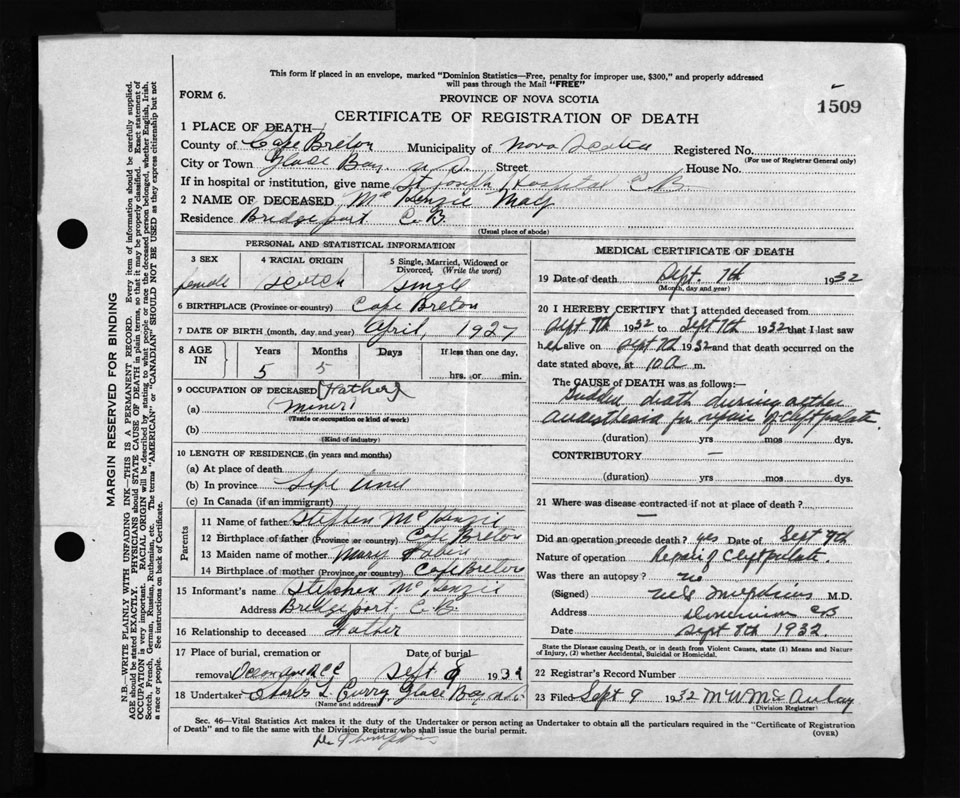 This form if placed in an envelope, marked "Dominion Statistics—Free, penalty for improper use, $300," and properly addressed
will pass through the Mail "FREE"
FORM 6.
PROVINCE OF NOVA SCOTIA
1509
CERTIFICATE OF REGISTRATION OF DEATH
1 PLACE OF DEATH—
County of Cape Breton Municipality of Nova Scotia Registered No.
(For use of Registrar General only)
City or Town Glace Bay N.S. Street House No.
If in hospital or institution, give name St Joseph Hospital C.B.
2 NAME OF DECEASED McKenzie Mary
Residence Bridgeport C.B.
(Usual place of abode)
PERSONAL AND STATISTICAL INFORMATION
3 SEX 4 RACIAL ORIGIN 5 Single, Married, Widowed or
Divorced, (Write the word)
female Scotch Single
6 BIRTHPLACE (Province or country) Cape Breton
7 DATE OF BIRTH (month, day, and year) April, 1927
8 AGE IN Years Months Days If less than one day,
5 5 hrs. or min.
9 OCCUPATION OF DECEASED [Father]
(a) miner
(Trade or occupation or kind of work)
(b)
(Kind of industry)
10 LENGTH OF RESIDENCE (in years and months)
(a) At place of death
(b) In province Life time
(c) In Canada (if an immigrant)
Parents
11 Name of father Stephen McKenzie
12 Birthplace of father (Province or country) Cape Breton
13 Maiden name of mother Mary
14 Birthplace of mother (Province or country) Cape Breton
15 Informant's name Stephen McKenzie
Address Bridgeport C.B.
16 Relationship to deceased Father
17 Place of burial, cremation or Date of burial
removal Sept 9 1932
18 Undertaker Charles L. Curry Glace Bay N.S.
(Name and address)
MEDICAL CERTIFICATE OF DEATH
19 Date of death Sept. 7th 1932
(Month, day and year)
20 I HEREBY CERTIFY that I attended deceased from
Sept 7th 1932 to Sept 7th 1932 that I last saw
her alive on Sept 7th 1932 and that death occurred on the
date stated above, at 10 a m.
The CAUSE OF DEATH was as follows:—
Sudden death during ether
anaesthesia for repair of cleft palate.
(duration) yrs mos dys.
CONTRIBUTORY —
(duration) yrs. mos. dys.
21 Where was disease contracted if not at place of death?
—
Did an operation precede death? yes Date of Sept 7th
Nature of operation Repair of Cleft palate.
Was there an autopsy? no
(Signed) M.D.
Address Dominion CB
Date Sept 8th 1932.
State the Disease causing Death, or in death from Violent Causes, state (1) Means and Nature
of Injury, (2) whether Accidental, Suicidal or Homicidal.
22 Registrar's Record Number
23 Filed Sept 9 1932 M W McAulay
(Division Registrar)
Sec. 46—Vital Statistics Act makes it the duty of the Undertaker or person acting as Undertaker to obtain all the particulars required in the "Certificate of Registration
of Death" and to file the same with the Division Registrar who shall issue the burial permit.
(OVER)
Dr Thompkins
MARGIN RESERVED FOR BINDING
N.B.—WRITE PLAINLY WITH UNFADING INK—THIS IS A PERMANENT RECORD. Every item of information should be carefully supplied.
AGE should be stated EXACTLY. PHYSICIANS should STATE CAUSE OF DEATH in plain terms, so that it may be properly classified. Exact statement of
OCCUPATION is very important. RACIAL ORIGIN will be described by stating to what people or race the deceased person belonged, whether English, Irish,
Scotch, French, German, Russian, Ruthenian, etc. The terms "AMERICAN" or "CANADIAN" SHOULD NOT BE USED as they express citizenship but not
a race or people. See instructions on back of Certificate.